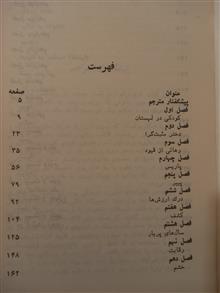 فهرست
عنوان صفحه
پیشگفتار مترجم ۵
فصل اول
کودکی در لهستان ۹
فصل دوم
دختر مثبت‌گرا ۲۳
فصل سوم
رهائی از قیود ۳۵
فصل چهارم
پاریس ۵۶
فصل پنجم
۷۹
فصل ششم
درک ارزش‌ها ۹۲
فصل هفتم
کشف ۱۰۴
فصل هشتم
سال‌های پربار ۱۲۵
فصل نهم
رقابت ۱۴۸
فصل دهم
خشم ۱۶۲